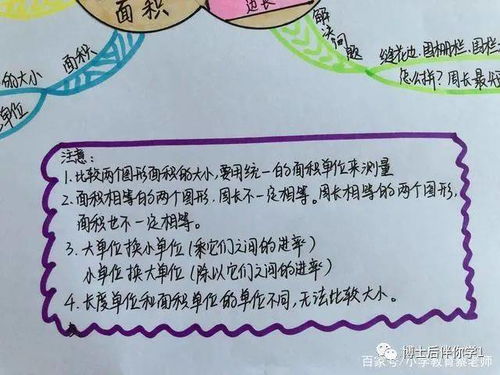 面积
边长
解决问题
缝花边、围栅栏、围栏
怎么拼？周长最短
面积
的大小
单位
注意：
1. 比较两个图形面积的大小，要用统一的面积单位来测量
2. 面积相等的两个图形，周长不一定相等。周长相等的两个图形，
面积也不一定相等。
3. 大单位换小单位（乘它们之间的进率）
小单位换大单位（除以它们之间的进率）
4. 长度单位和面积单位的单位不同，无法比较大小。
博士后伴你学1
百家号/小学教育蔡老师